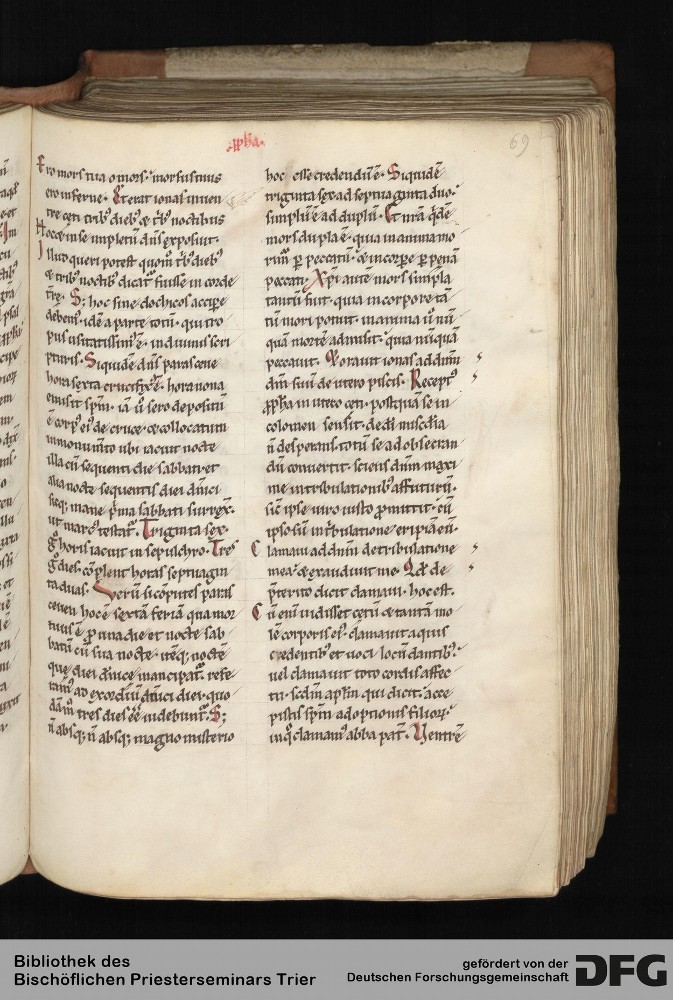 ·ꝓph̄a·
69
Ero mors tua o mors· morsus tuus
ero inferne· Et erat ionas in uen
tre ceti trib; dieb; & t'b; noctibus
Hoc de se impletū dn̄s exposuit·
Illud queri potest quom̄ t'b; dieb;
& trib; noctib; dicat' fuisse in corde
t're· S; hoc sinedochicos accipe
debem'· idē a parte totū· qui tro
pus usitatissim' ē· in diuinis scri
pturis· Siquidē dn̄s parasceue
hora sexta crucifix' ē· hora nona
emisit sp̄m· iā ů sero depositū
ē corp' ei' de cruce· & collocatum
in monum̄to ubi iacuit nocte
illa cū sequenti die sabbati· et
alia nocte sequentis diei dn̄ici
sicq; mane p'ma sabbati surrex̄·
ut marc' testat'· Triginta sex·
g° horis iacuit in sepulchro· Tres
g° dies· cōplent horas septuagin
ta duas· Verū si cōputes paras
ceuen hoc ē sextā feriā qua mor
tuus ē p una die et nocte sab
batū cū sua nocte· itēq; noctē
que diei dn̄ice mancipat' refe
ram' ad exordiū dn̄ici diei· quo
dā m̄ tres dies ēē uidebunt'· S;
n̄ absq; n̄ absq; magno misterio
hoc esse credendū ē· Siquidē
triginta sex ad septuaginta duo·
simplū ē ad duplū· Et nr̄a q'dē
mors dupla ē· quia in anima mo
rim' p peccatū· & in corpe p penā
peccati· Xp̄i autē mors simpla
tantū fuit· quia in corpore tā
tū mori potuit· in anima ů nū
quā mortē admisit· quia nūquā
peccauit· Et orauit ionas ad dn̄m
dm̄ suū de utero piscis· Recept'
ꝓph̄a in utero ceti· postquā se in
colomen sensit· de dei mis̄c̄dia
n̄ desperans· totū se ad obsecran
dū conuertit· sciens dn̄m maxi
me in tribulationib; affuturū·
sic ipse uiro iusto ꝓmittit· cū
ipso sū in t'bulatione eripiā eū·
Clamaui ad dn̄m de tribulatione
mea· & exaudiuit me· Qd de
p̄terito dicit clamaui· hoc est·
Cū enī uidisset cetū & tantam mo
lē corporis ei'· clamauit aquis
cedentib; et uoci locū dantib;·
uel clamauit toto cordis affec
tu· scdm apl̄m qui dicit· acce
pistis sp̄m adoptionis filiorꝫ
in q° clamam' abba pat'· Ventrē
Bibliothek des
Bischöflichen Priesterseminars Trier
gefördert von der
Deutschen Forschungsgemeinschaft
DFG